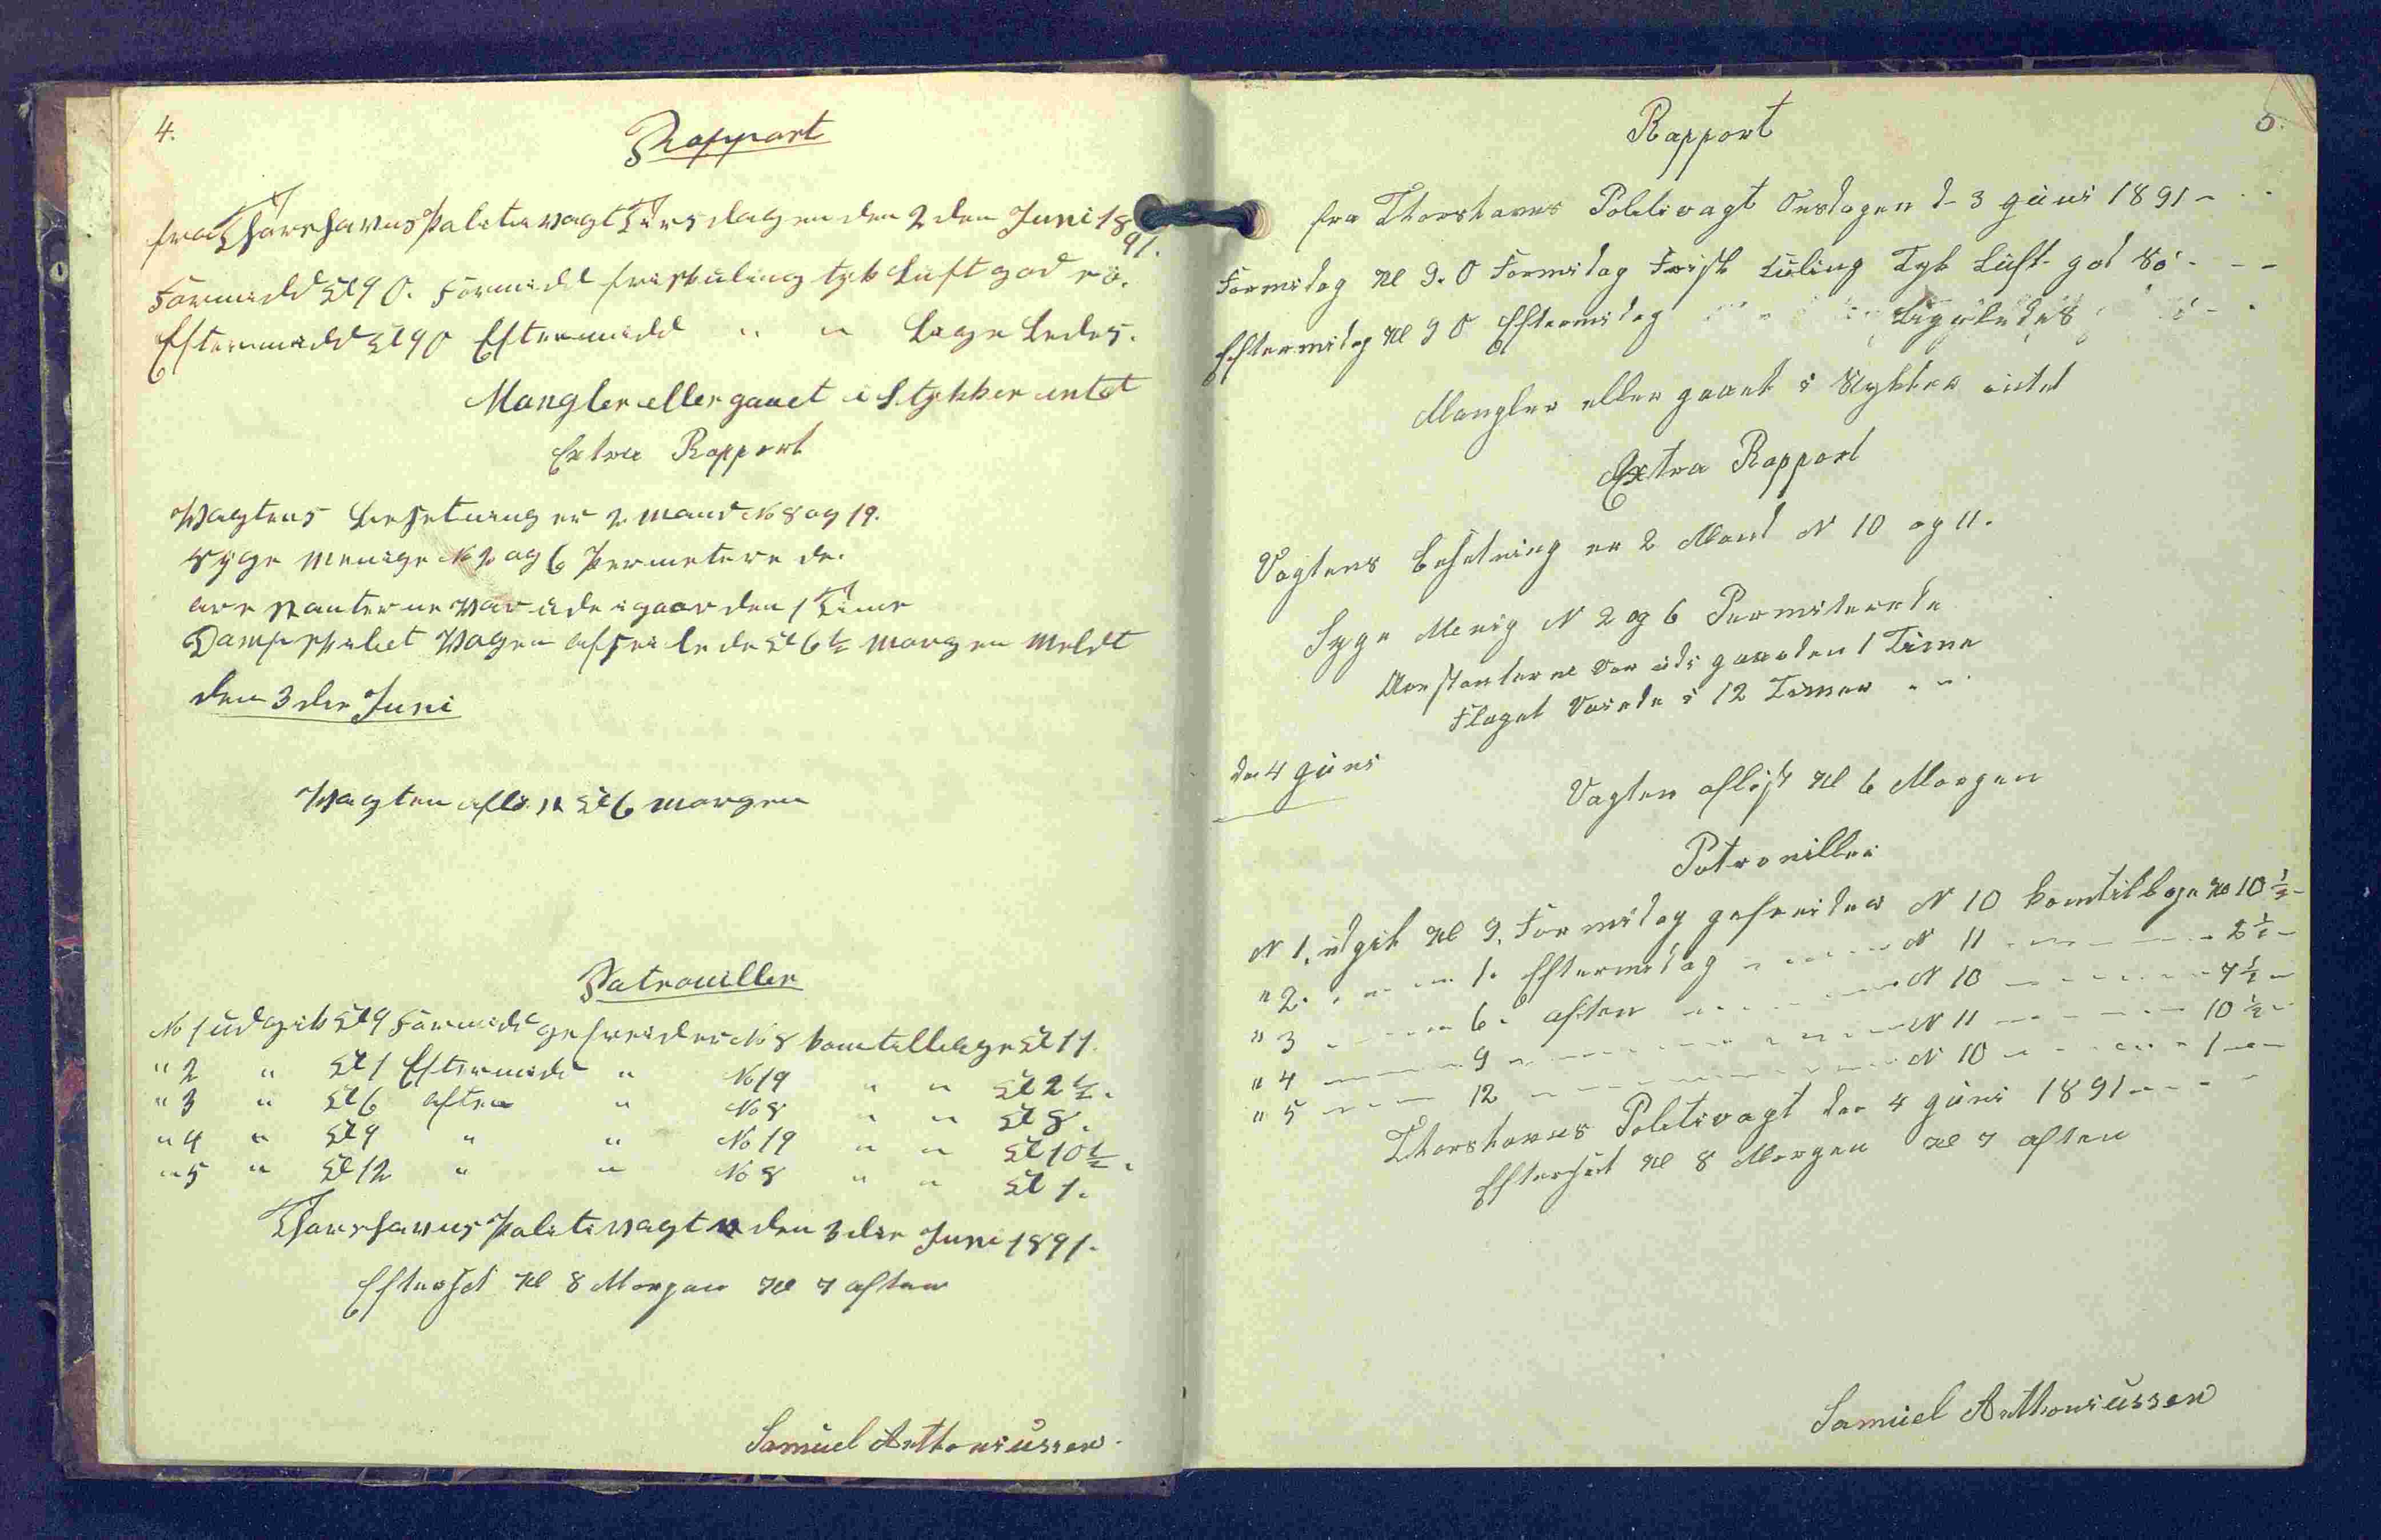 4.
Rapport
fra Thorshavns Politivagt Tirsdagen den 2 den Juni 1891.
Formidd Kl 9 O. Formidd friskuling tyk Luft god sö.
Eftermidd Kl 9 O Eftermidd " " Lige Ledes.
Mangler eller gaaet i Stykker intet
Extra Rapport
Vagtens besetning er 2 mand No 8 og 19.
Syge Menige No 2 og 6 Permetere de.
arestanterne var ude i gaarden 1 Time
Dampskibet Vagen afseilede Kl 6½ morgen Meldt
den 3 die Juni
Vagten aflöst Kl 6 morgen
Patrouiller
No 1 udgik Kl 9 Formidd gefreider No 8 kom tilbage Kl 11.
" 2 " Kl 1 Eftermidd " No 19 " " Kl 2½.
" 3 " Kl 6 aften " No 8 " " Kl 8.
" 4 " Kl 9 " " No 19 " " Kl 10½.
" 5 " Kl 12 " " No 8 " " Kl 1.
Thorshavns Politivagt den 3 die Juni 1891.
Efterset Kl 8 Morgen Kl 7 aften
Samuel Anthoniussen.
5.
Rapport
fra Thorshavns Politivagt Onsdagen d- 3 guni 1891 -
Formidag Kl 9. O Formidag Frisk Kuling Tyk Luft god Sö - - -
Eftermidag Kl 9 O Eftermidag Liggeledes
Mangler eller gaaet i Stykker intet
Extra Rapport
Vagtens besetning er 2 Mand N 10 og 11.
Syge Menig N 2 og 6 Permiterede
Arestanterne var udi gaarden 1 Time
Flaget Vaiede i 12 Timer - -
den 4 guni
Vagten aflöst Kl 6 Morgen
Patrouiller
N 1. udgik Kl 9. Formidag gefreider N 10 kom tilbage Kl 10½ -
" 2. - - - 1. Eftermidag - - - N 11 - - - - 2½ -
" 3 - - - 6. aften - - - N 10 - - - - 7½ -
" 4 - - - 9 - - - - N 11 - - - - 10½ -
" 5 - - - 12 - - - - N 10 - - - - 1 - -
Thorshavns Politivagt den 4 guni 1891 - - - -
Efterset Kl 8 Morgen Kl 7 aften
Samuel Anthoniussen